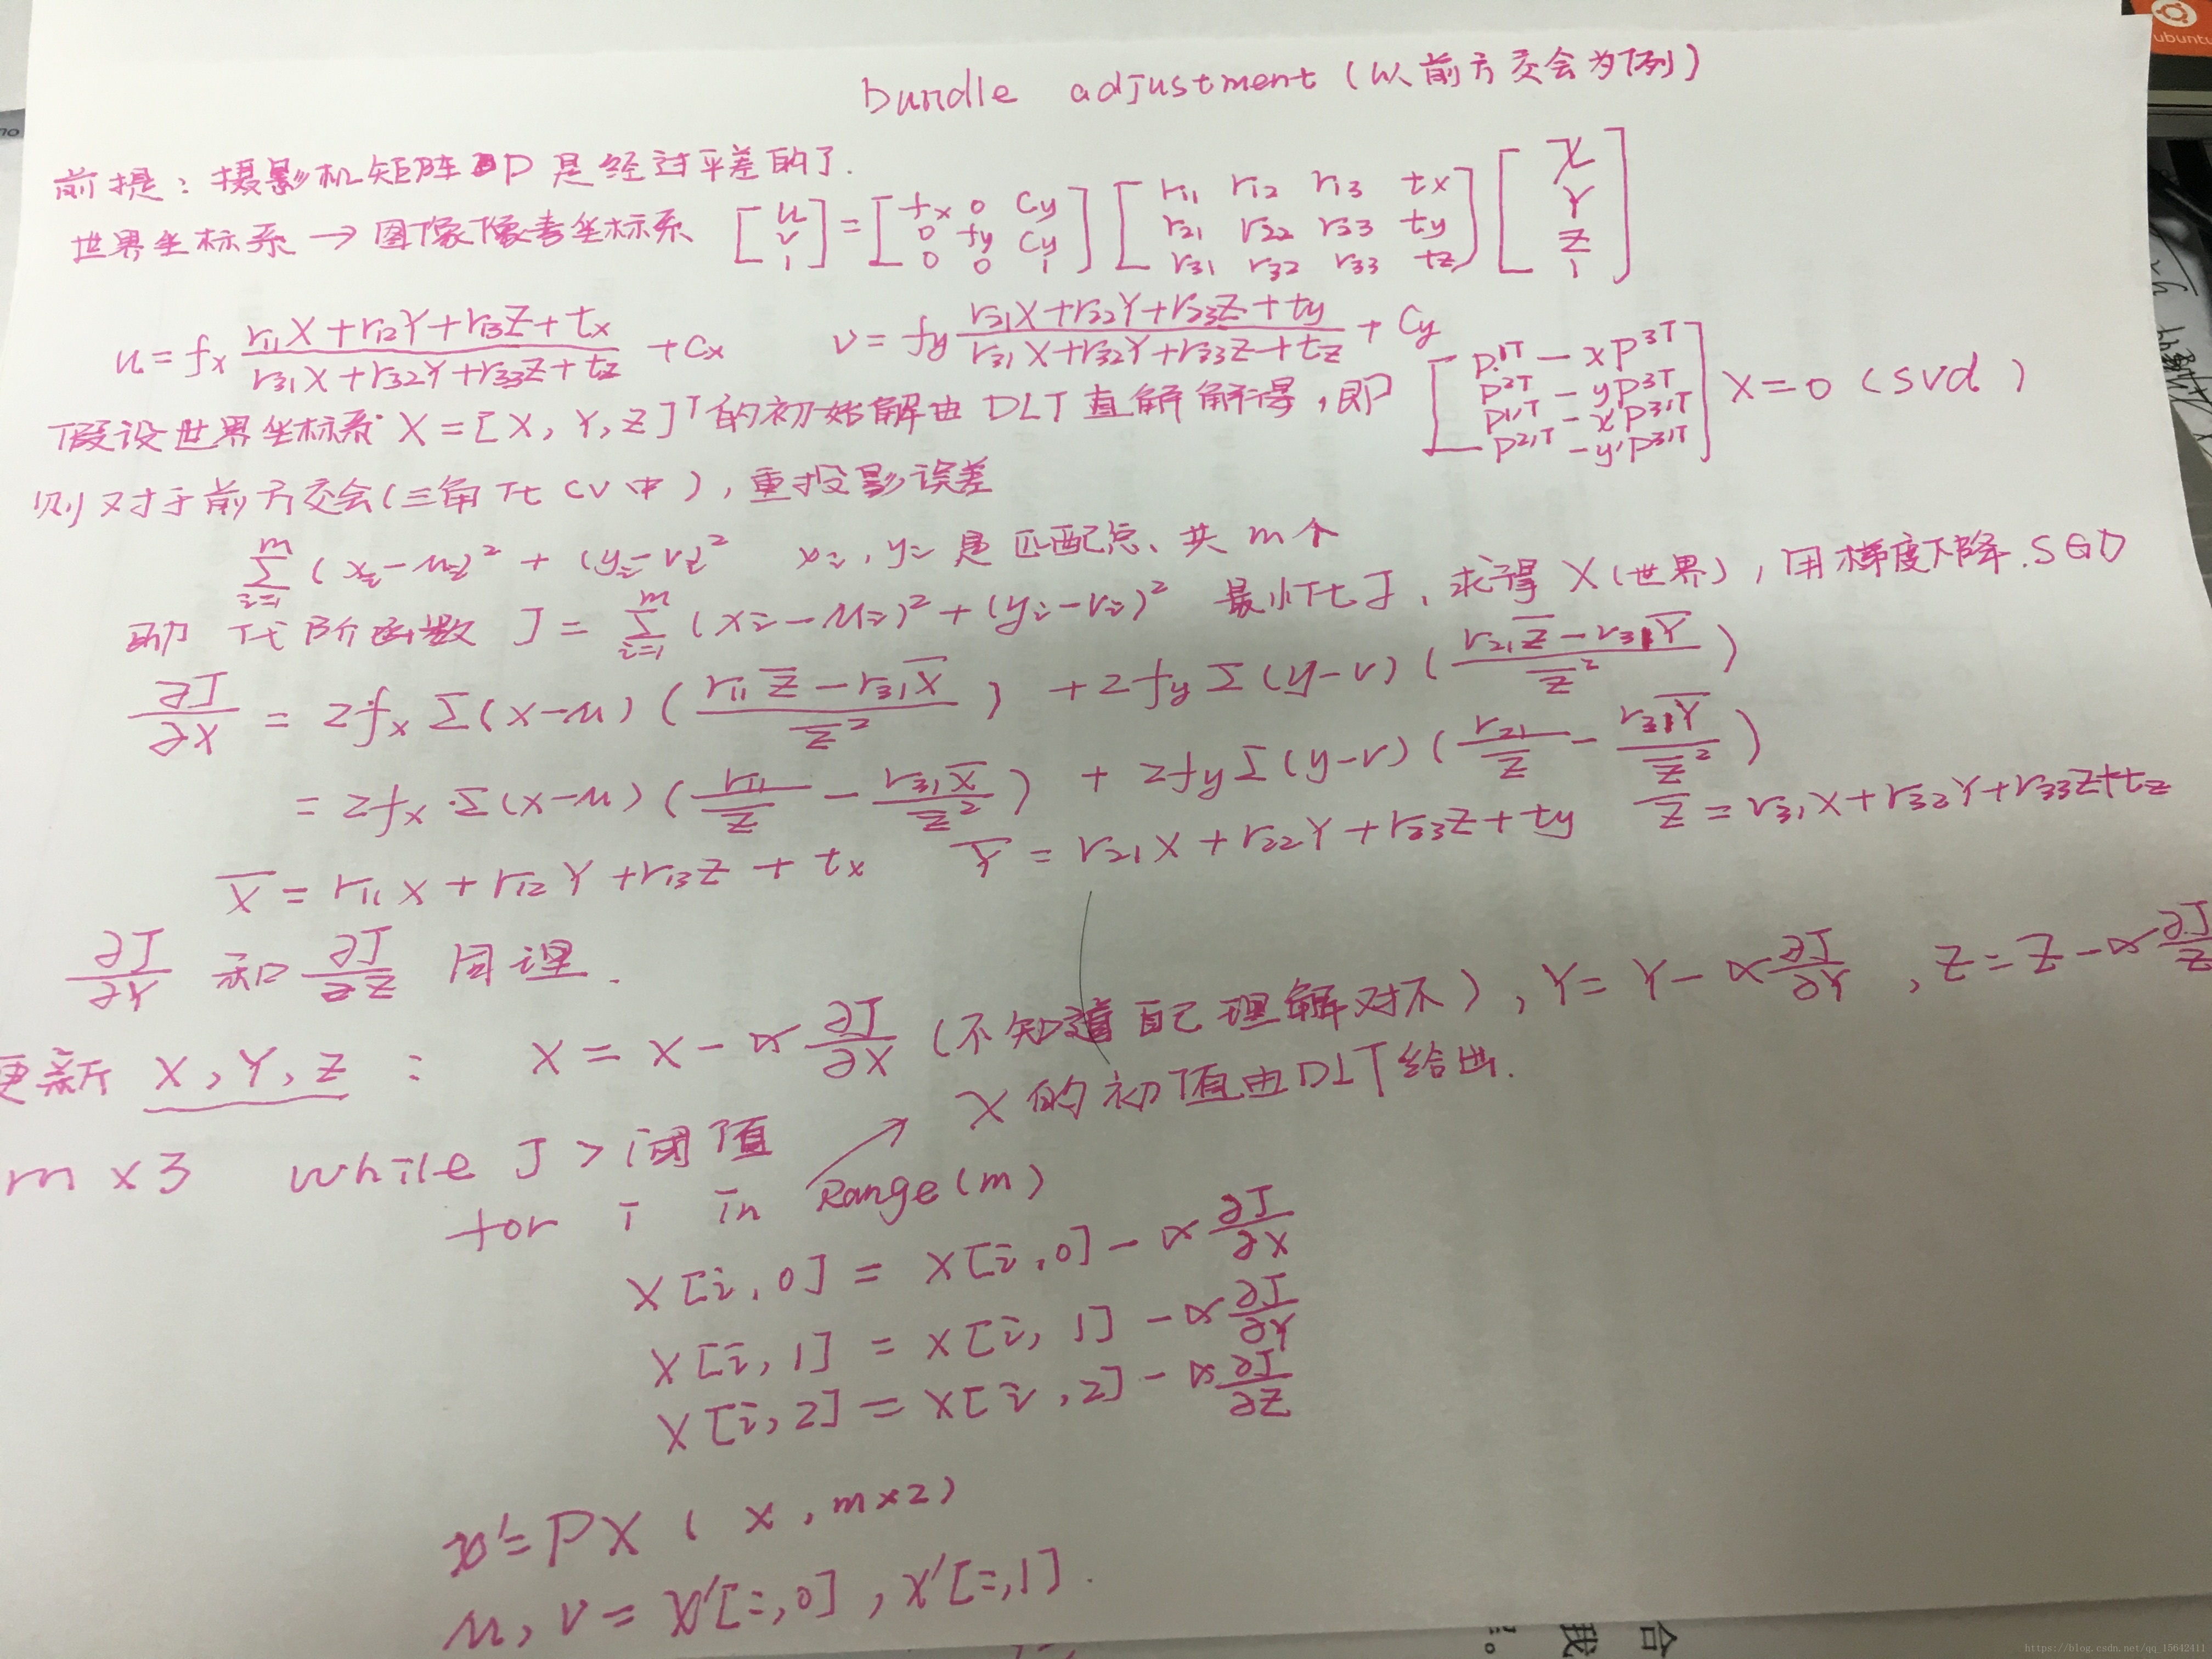 bundle adjustment (以前方交会为例)
前提：摄影机矩阵P是经过平差的了.
世界坐标系 → 图像像素坐标系 [u v 1] = [fx 0 Cy; 0 fy Cy; 0 0 1] [r11 r12 r13 tx; r21 r22 r23 ty; r31 r32 r33 tz] [X Y Z 1]
u = fx (r11X+r12Y+r13Z+tx)/(r31X+r32Y+r33Z+tz) + Cx    v = fy (r21X+r22Y+r23Z+ty)/(r31X+r32Y+r33Z+tz) + Cy
假设世界坐标系 X=[X, Y, Z]ᵀ的初始解由 DLT 直解解得, 即 [P^1T - xP^3T; P^2T - yP^3T; P^1'T - x'P^3'T; P^2'T - y'P^3'T] X=0 (svd)
则对于前方交会(三角化 CV中), 重投影误差
Σ_{i=1}^{m} (xi-ui)² + (yi-vi)²  xi, yi 是匹配点、共m个
即 代价函数 J = Σ_{i=1}^{m} (xi-ui)² + (yi-vi)² 最小化J, 求得 X(世界), 用梯度下降.SGD
∂J/∂X = 2fx Σ(x-u) ((r11Z̅ - r31X̅)/Z̅²) + 2fy Σ(y-v) ((r21Z̅ - r31Y̅)/Z̅²)
= 2fx·Σ(x-u) (r11/Z̅ - r31X̅/Z̅²) + 2fyΣ(y-v) (r21/Z̅ - r31Y̅/Z̅²)
X̅ = r11X + r12Y + r13Z + tx   Y̅ = r21X + r22Y + r23Z + ty   Z̅ = r31X+r32Y+r33Z+tz
∂J/∂Y 和 ∂J/∂Z 同理.
更新 X, Y, Z : X = X - α ∂J/∂X (不知道自己理解对不), Y = Y - α ∂J/∂Y , Z = Z - α ∂J/Z
X 的初值由DLT给出.
m×3 while J > 阈值
for i in Range(m)
X[i,0] = X[i,0] - α ∂J/∂X
X[i,1] = X[i,1] - α ∂J/∂Y
X[i,2] = X[i,2] - α ∂J/∂Z
x' = PX ( x, m×2)
u, v = x'[:,0], x'[:,1].
ubuntu
合
我
https://blog.csdn.net/qq_15642411